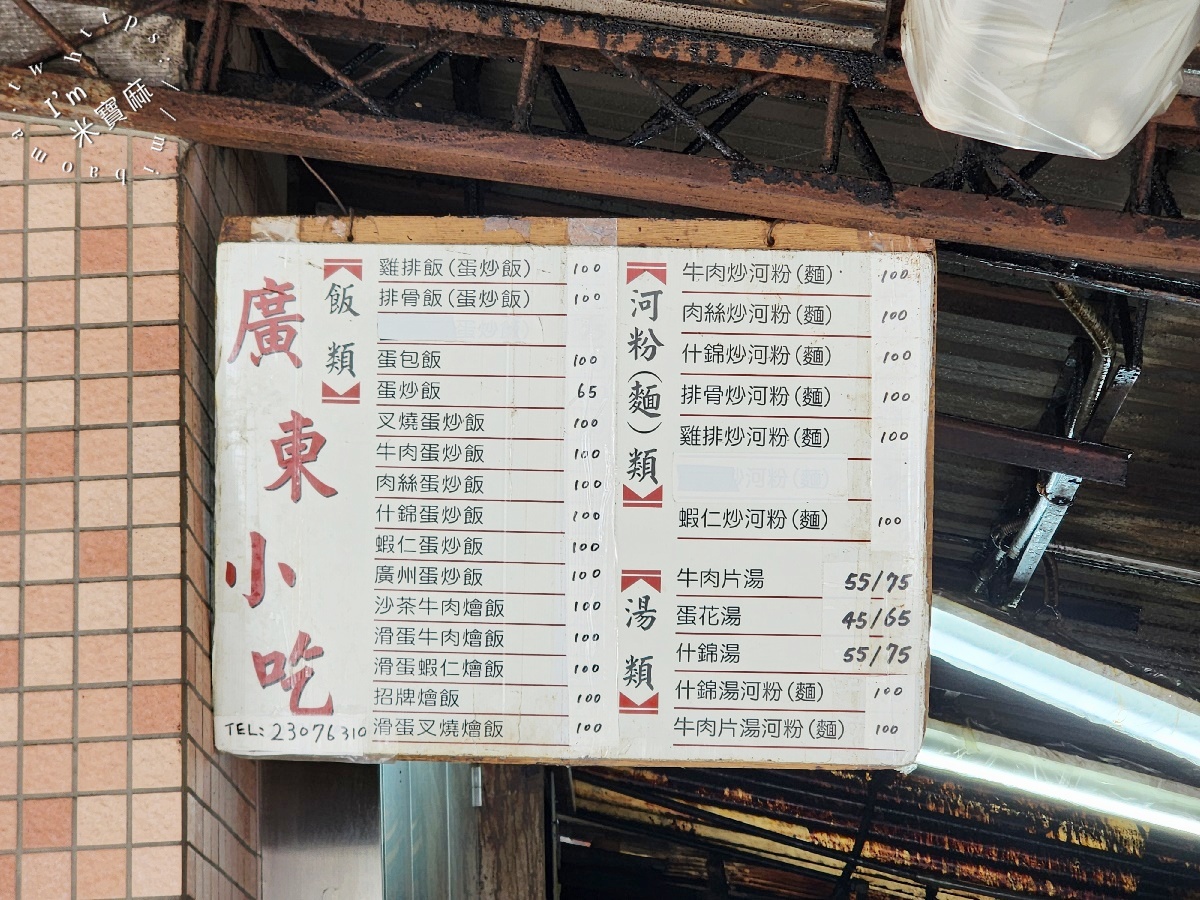 I'm
米寶麻
廣東小吃
TEL: 23076310
飯類
雞排飯(蛋炒飯) 100
排骨飯(蛋炒飯) 100
蛋包飯 100
蛋炒飯 65
叉燒蛋炒飯 100
牛肉蛋炒飯 100
肉絲蛋炒飯 100
什錦蛋炒飯 100
蝦仁蛋炒飯 100
廣州蛋炒飯 100
沙茶牛肉燴飯 100
滑蛋牛肉燴飯 100
滑蛋蝦仁燴飯 100
招牌燴飯 100
滑蛋叉燒燴飯 100
河粉(麵)類
牛肉炒河粉(麵) 100
肉絲炒河粉(麵) 100
什錦炒河粉(麵) 100
排骨炒河粉(麵) 100
雞排炒河粉(麵) 100
河粉(麵)
蝦仁炒河粉(麵) 100
湯類
牛肉片湯 55/75
蛋花湯 45/65
什錦湯 55/75
什錦湯河粉(麵) 100
牛肉片湯河粉(麵) 100